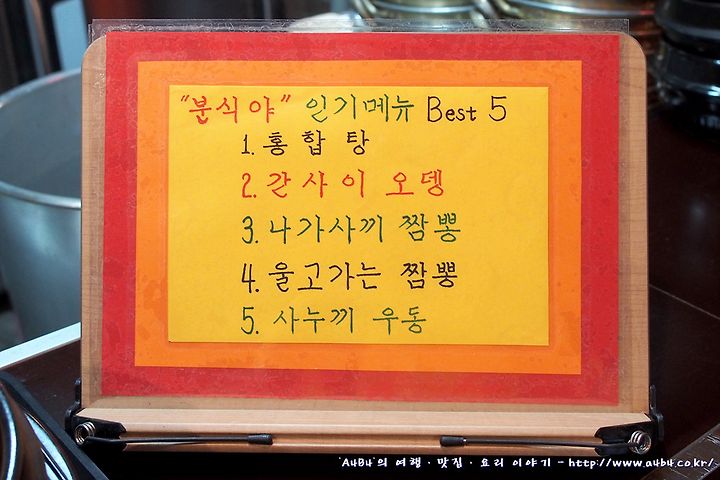 "분식야" 인기메뉴 Best 5
1. 홍합탕
2. 간사이 오뎅
3. 나가사끼 짬뽕
4. 울고가는 짬뽕
5. 사누끼 우동
'AuBu'의 여행 · 맛집 · 요리 이야기 - http://www.aubu.co.kr/